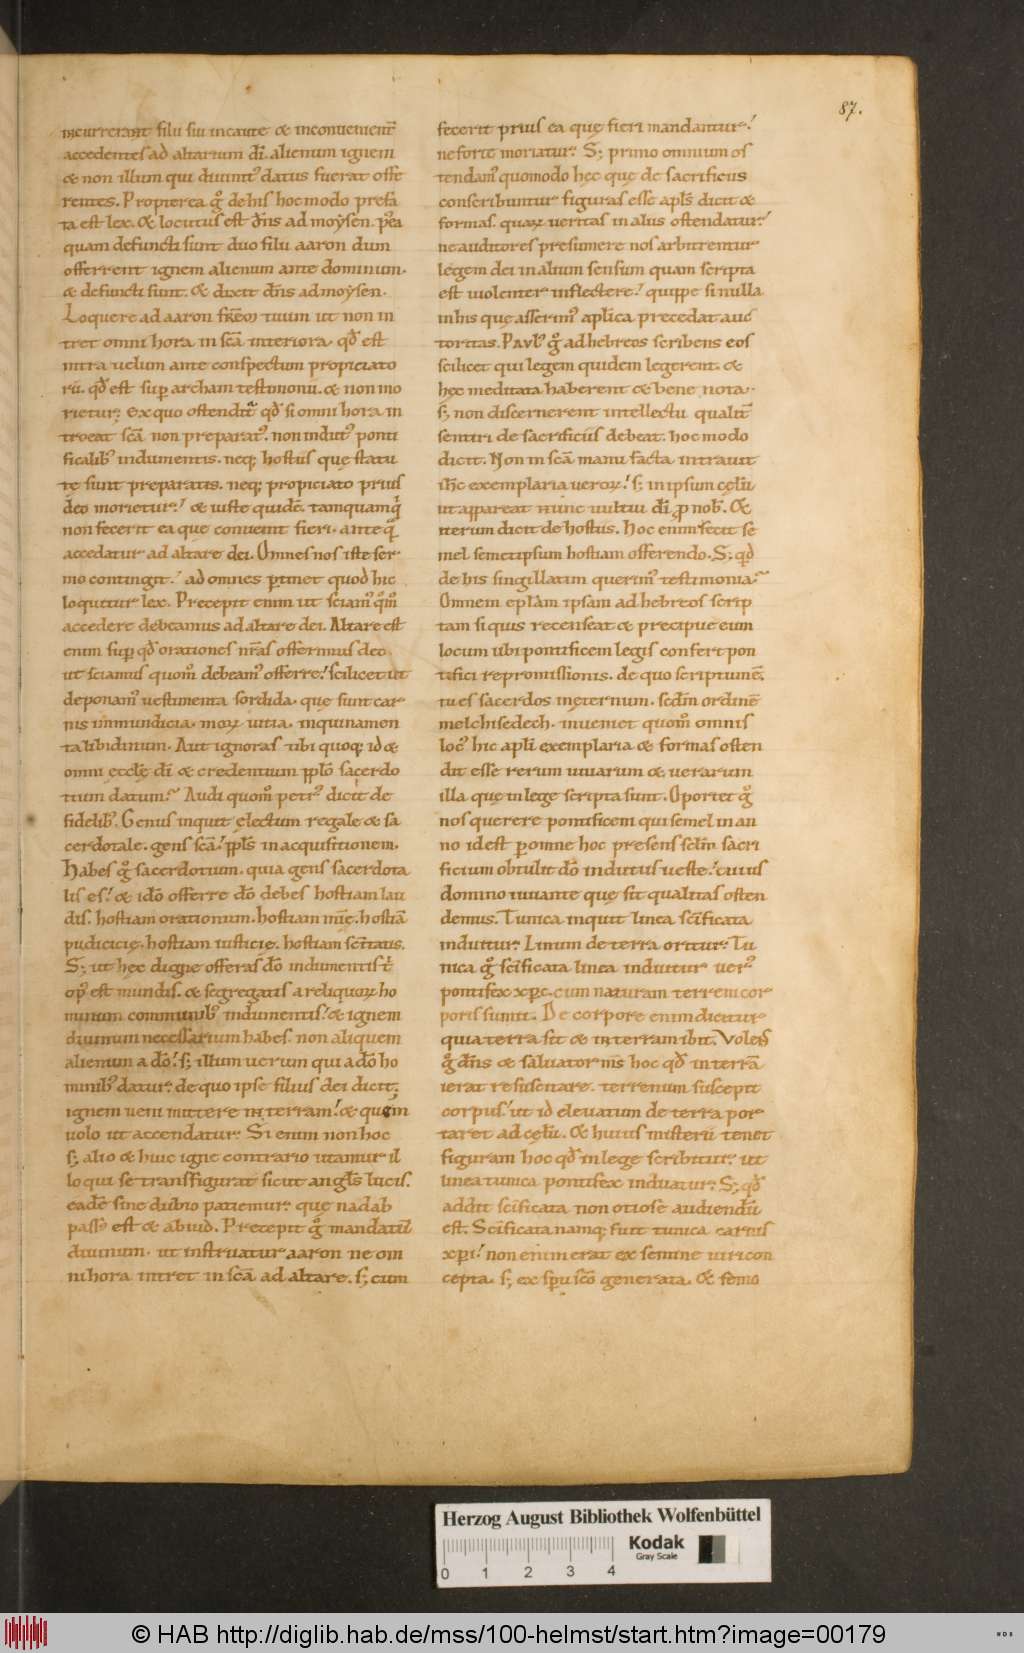 87.
incurrerant filii sui incaute & inconvenient̄
accedentes ad altarium dī. alienum ignem
& non illum qui divinit᾽ datus fuerat offe
rentes. Propterea ḡ de his hoc modo prefa
ta est lex. & locutus est dn̄s ad moẏsen. p̄ea
quam defuncti sunt duo filii aaron dum
offerrent ignem alienum ante dominum.
& defuncti sunt. & dixit dn̄s ad moẏsen.
Loquere ad aaron fr̄em tuum ut non in
tret omni hora in scā interiora. qd̄ est
intra velum ante conspectum propiciato
rii. qd̄ est sup archam testimonii. & non mo
rietur; ex quo ostendit᾽ qd̄ si omni hora in
troeat scā non preparat᾽. non indut᾽ ponti
ficalib᾽ indumentis. neq; hostiis que statu
te sunt preparatis. neq; propiciato prius
deo morietur; & iuste quidē. tamquam q̄
non fecerit ea que conveniunt fieri. ante q̄
accedatur ad altare dei. Omnes nos iste ser
mo contingit. ad omnes ptinet quod hic
loquitur lex. Precepit enim ut sciam᾽ qm̄o
accedere debeamus ad altare dei. Altare est
enim sup qd̄ orationes nr̄as offerimus deo.
ut sciamus quom̄ debeam᾽ offerre; scilicet ut
deponam᾽ vestimenta sordida. que sunt car
nis inmundicia. moꝝ vitia. inquinamen
ta libidinum. Aut ignoras tibi quoq; id ē
omni ecclę dī & credentium pplō sacerdo
tium datum; Audi quom̄ petr᾽ dicit de
fidelib᾽. Genus inquit electum regale & sa
cerdotale. gens scā; ppls̄ in acquisitionem.
Habes ḡ sacerdotium. quia gens sacerdota
lis es; & ido offerre dō debes hostiam lau
dis. hostiam orationum. hostiam mi᾽e. hostiā
pudicicię. hostiam iusticię. hostiam sc̄itatis.
S; ut hec digne offeras dō indumentis t᾽
op᾽ est mundis. & segregatis a reliquoꝝ ho
minum communib᾽ indumentis; & ignem
divinum necessarium habes. non aliquem
alienum a dō; s; illum verum qui a dō ho
minib᾽ datur; de quo ipse filius dei dicit;
ignem veni mittere in terram; & quem
volo ut accendatur. Si enim non hoc
s; alio & huic igne contrario utamur il
lo qui se transfigurat sicut angls̄ lucis.
eadē sine dubio patiemur; que nadab
pass᾽ est & abiud. Precepit ḡ mandatū
divinum. ut instruatur aaron ne om
ni hora intret in scā ad altare. s; cum
fecerit prius ea que fieri mandantur;
ne forte moriatur; S; primo omnium os
tendam᾽ quomodo hec que de sacrificiis
conscribuntur figuras esse apls̄ dicit &
formas. quaꝝ veritas in aliis ostendatur;
ne auditores presumere nos arbitrentur
legem dei in alium sensum quam scripta
est violenter inflectere; quippe si nulla
in his que asserim᾽ aplica precedat auc
toritas. Paul᾽ ḡ ad hebreos scribens eos
scilicet qui legem quidem legerent. &
hec meditata haberent & bene nota.
s; non discernerent intellectu qualit̄
sentiri de sacrificiis debeat. hoc modo
dicit. Non in scā manu facta intravit
ih̄c exemplaria veroꝝ; s; in ipsum cęlū
ut appareat nunc vultui dī p nob᾽. &
iterum dicit de hostiis. Hoc enim fecit se
mel semetipsum hostiam offerendo. S; qd̄
de his singillatim querim᾽ testimonia;
Omnem eplam ipsam ad hebreos scrip
tam si quis recenseat & precipue eum
locum ubi pontificem legis confert pon
tifici repromissionis. de quo scriptum ē.
tu es sacerdos in ęternum. scdm̄ ordinē
melchisedech. inveniet quom̄ omnis
loc᾽ hic apli exemplaria & formas osten
dit esse rerum vivarum & verarum
illa que in lege scripta sunt. Oportet ḡ
nos querere pontificem qui semel in an
no id est p omne hoc presens sclm̄ sacri
ficium obtulit dō indutus veste; cuius
domino iuvante que sit qualitas osten
demus. Tunica inquit linea sc̄ificata
induitur; Linum de terra oritur; Tu
nica ḡ sc̄ificata linea induitur ver᾽
pontifex xp̄c. cum naturam terreni cor
poris sumit. De corpore enim dicitur
quia terra sit & in terram ibit. Volens
ḡ dn̄s & salvator ni᾽s hoc qd̄ in terrā
ierat resuscitare. terrenum suscepit
corpus; ut id elevatum de terra por
taret ad cęlū. & huius misterii tenet
figuram hoc qd̄ in lege scribitur; ut
linea tunica pontifex induatur; S; qd̄
addit sc̄ificata non otiose audiendū
est. Sc̄ificata namq; fuit tunica carnis
xp̄i; non enim erat ex semine viri con
cepta. s; ex sp̄u scō generata. & semo
Herzog August Bibliothek Wolfenbüttel
Kodak
Gray Scale
0 1 2 3 4
© HAB http://diglib.hab.de/mss/100-helmst/start.htm?image=00179